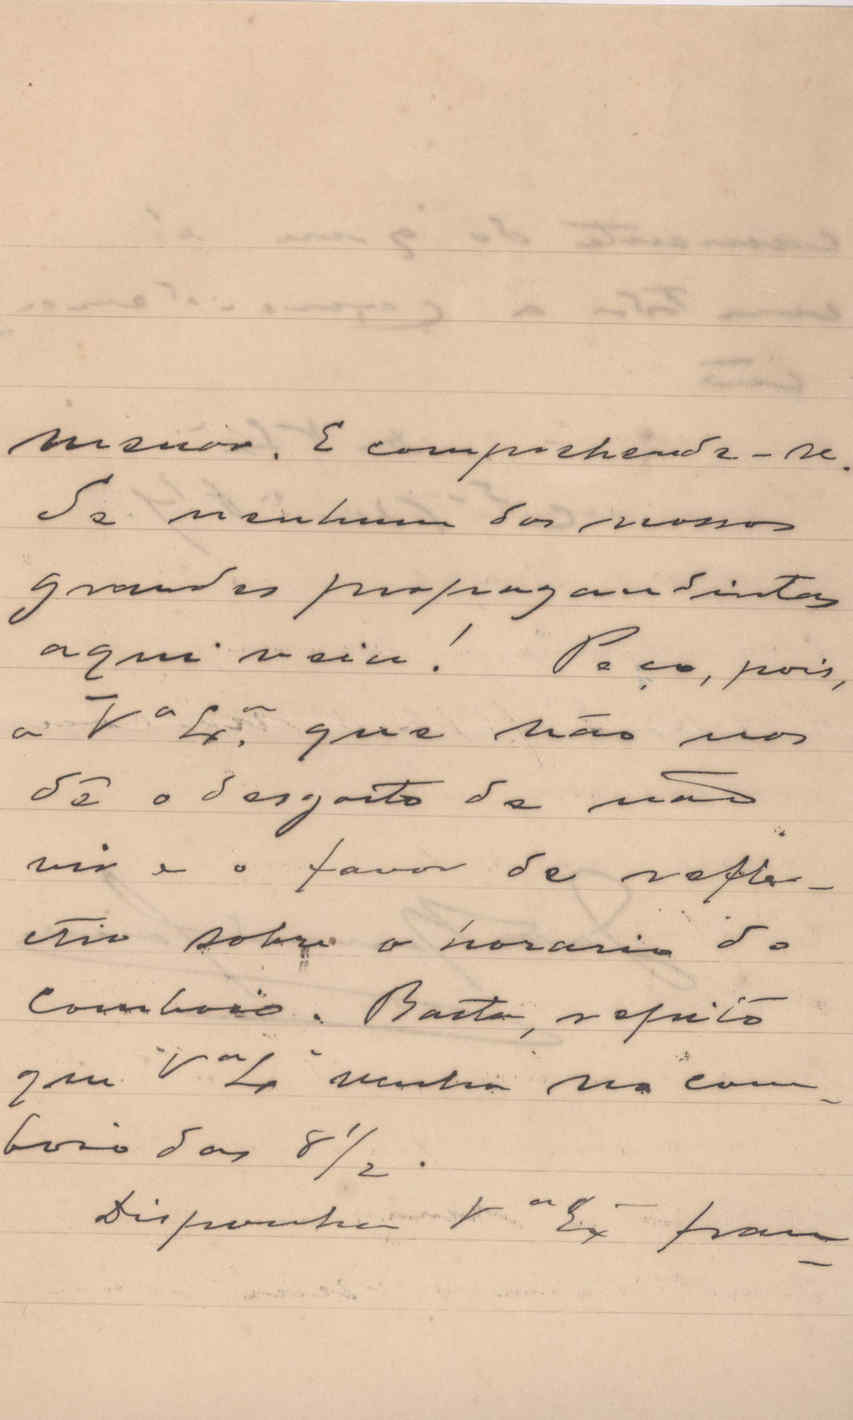 menor. E comprehende-se.
Se nenhum dos nossos
grandes propagandistas
aqui veiu! Peço, pois,
a Vª Exª que não nos
dê o desgosto de não
vir e o favor de refle-
ctir sobre o horario do
comboio. Basta, repito
que Vª Exª venha no com-
boio das 8 1/2.
Disponha Vª Exª fran-